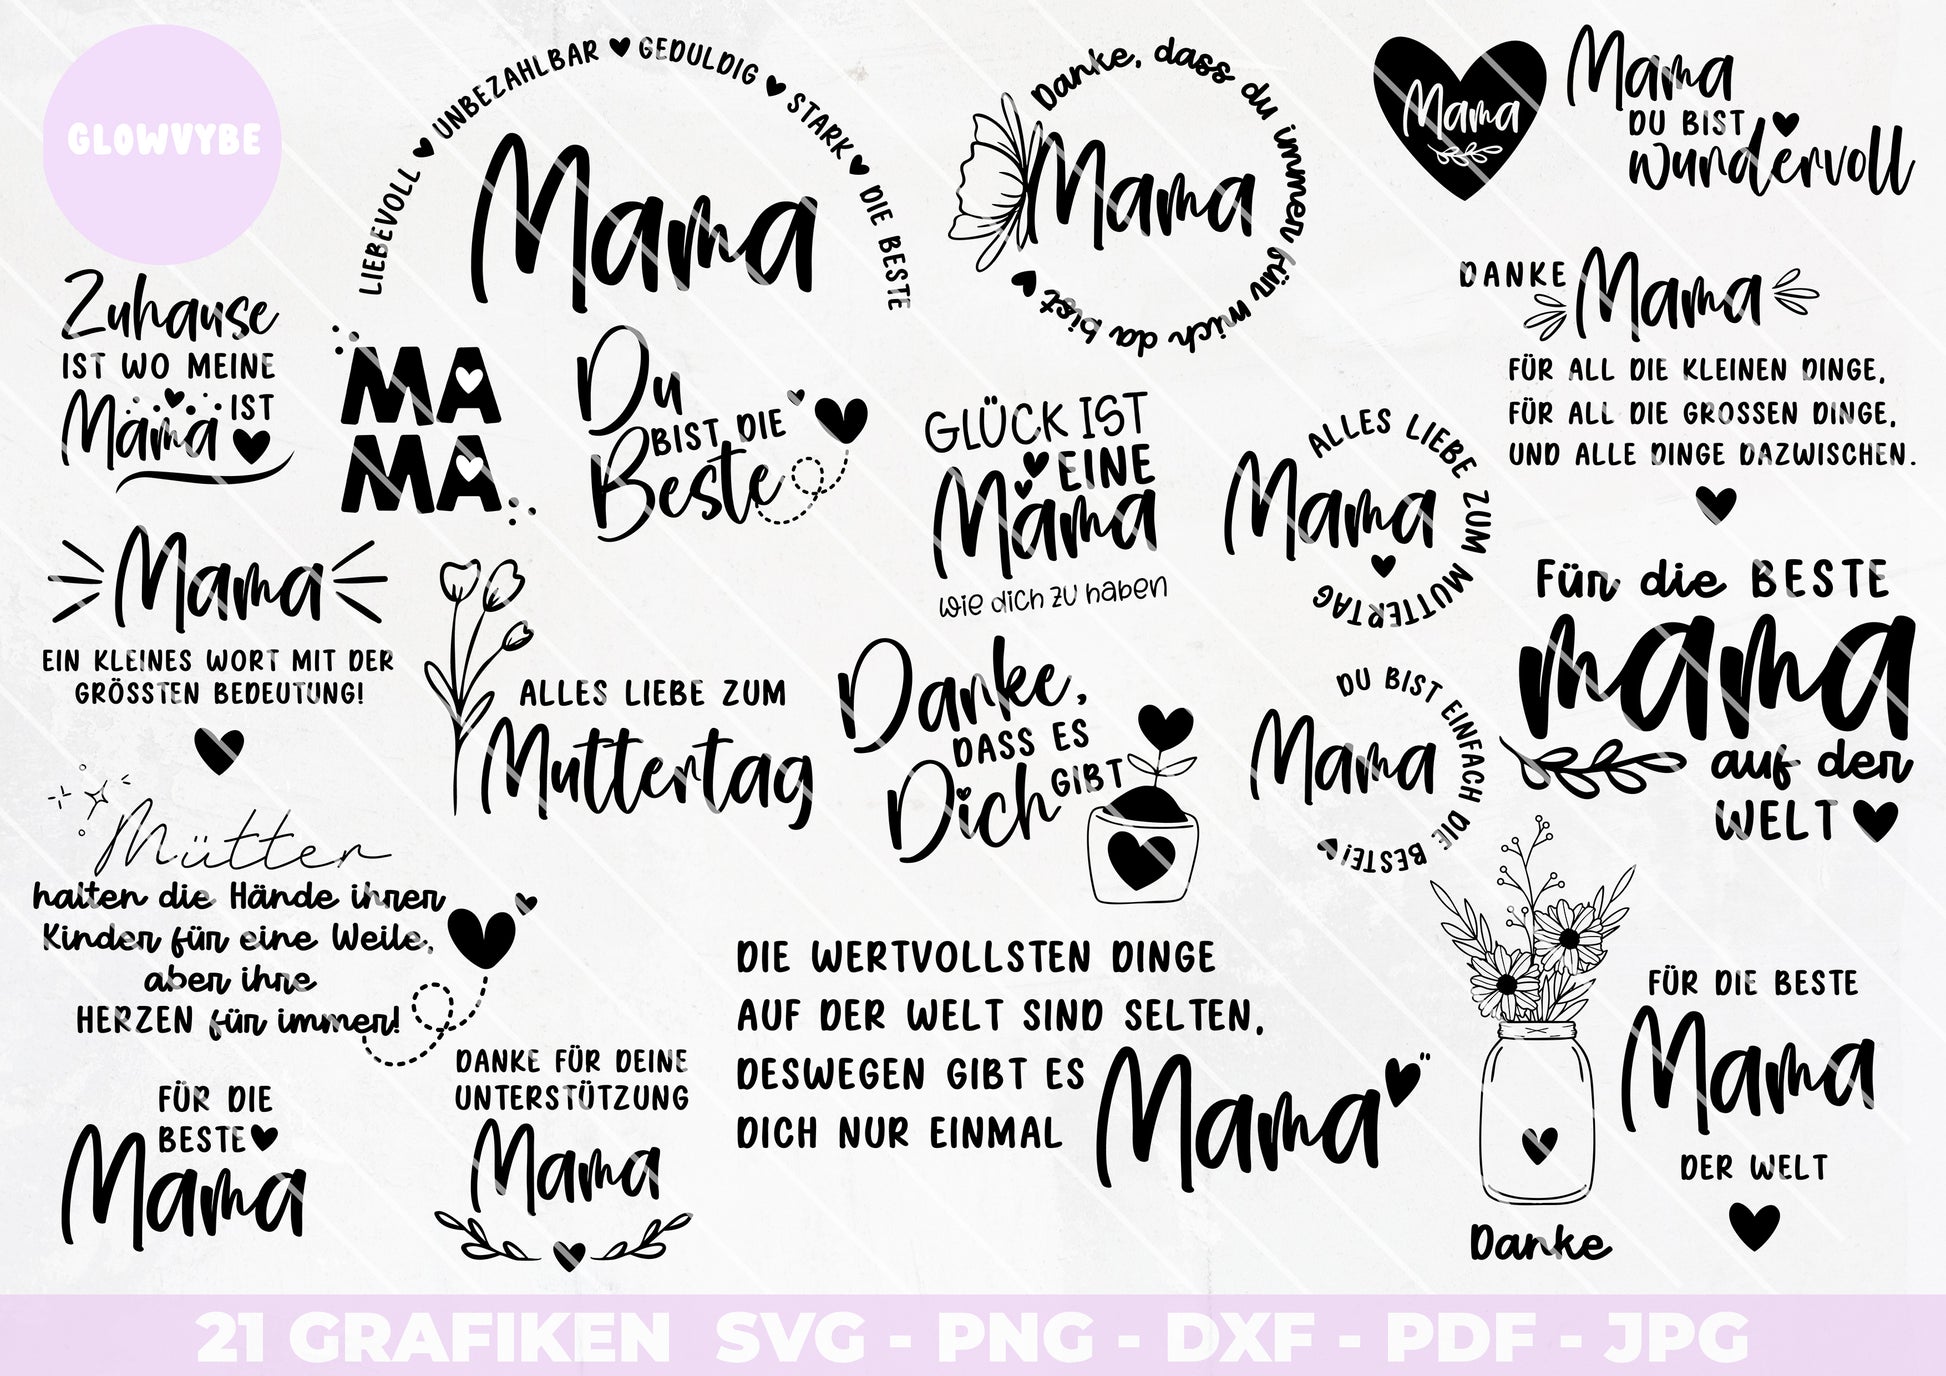 GLOWVYBE
LIEBEVOLL ♥ UNBEZAHLBAR ♥ GEDULDIG ♥ STARK ♥ DIE BESTE
Mama
Danke, dass du immer für mich da bist ♥
Mama
Mama
Mama
DU BIST
wundervoll
Zuhause
IST WO MEINE
Mama IST
MA
MA
Du
BIST DIE
Beste
GLÜCK IST
EINE
Mama
wie dich zu haben
ALLES LIEBE ZUM MUTTERTAG
Mama
DANKE Mama
FÜR ALL DIE KLEINEN DINGE,
FÜR ALL DIE GROSSEN DINGE,
UND ALLE DINGE DAZWISCHEN.
Mama
EIN KLEINES WORT MIT DER
GRÖSSTEN BEDEUTUNG!
ALLES LIEBE ZUM
Muttertag
Danke,
DASS ES
Dich GIBT
DU BIST EINFACH DIE BESTE!
Mama
Für die BESTE
mama
auf der
WELT
Mütter
halten die Hände ihrer
Kinder für eine Weile,
aber ihre
HERZEN für immer!
FÜR DIE
BESTE
Mama
DANKE FÜR DEINE
UNTERSTÜTZUNG
Mama
DIE WERTVOLLSTEN DINGE
AUF DER WELT SIND SELTEN,
DESWEGEN GIBT ES
DICH NUR EINMAL
Mama
Danke
FÜR DIE BESTE
Mama
DER WELT
21 GRAFIKEN SVG - PNG - DXF - PDF - JPG